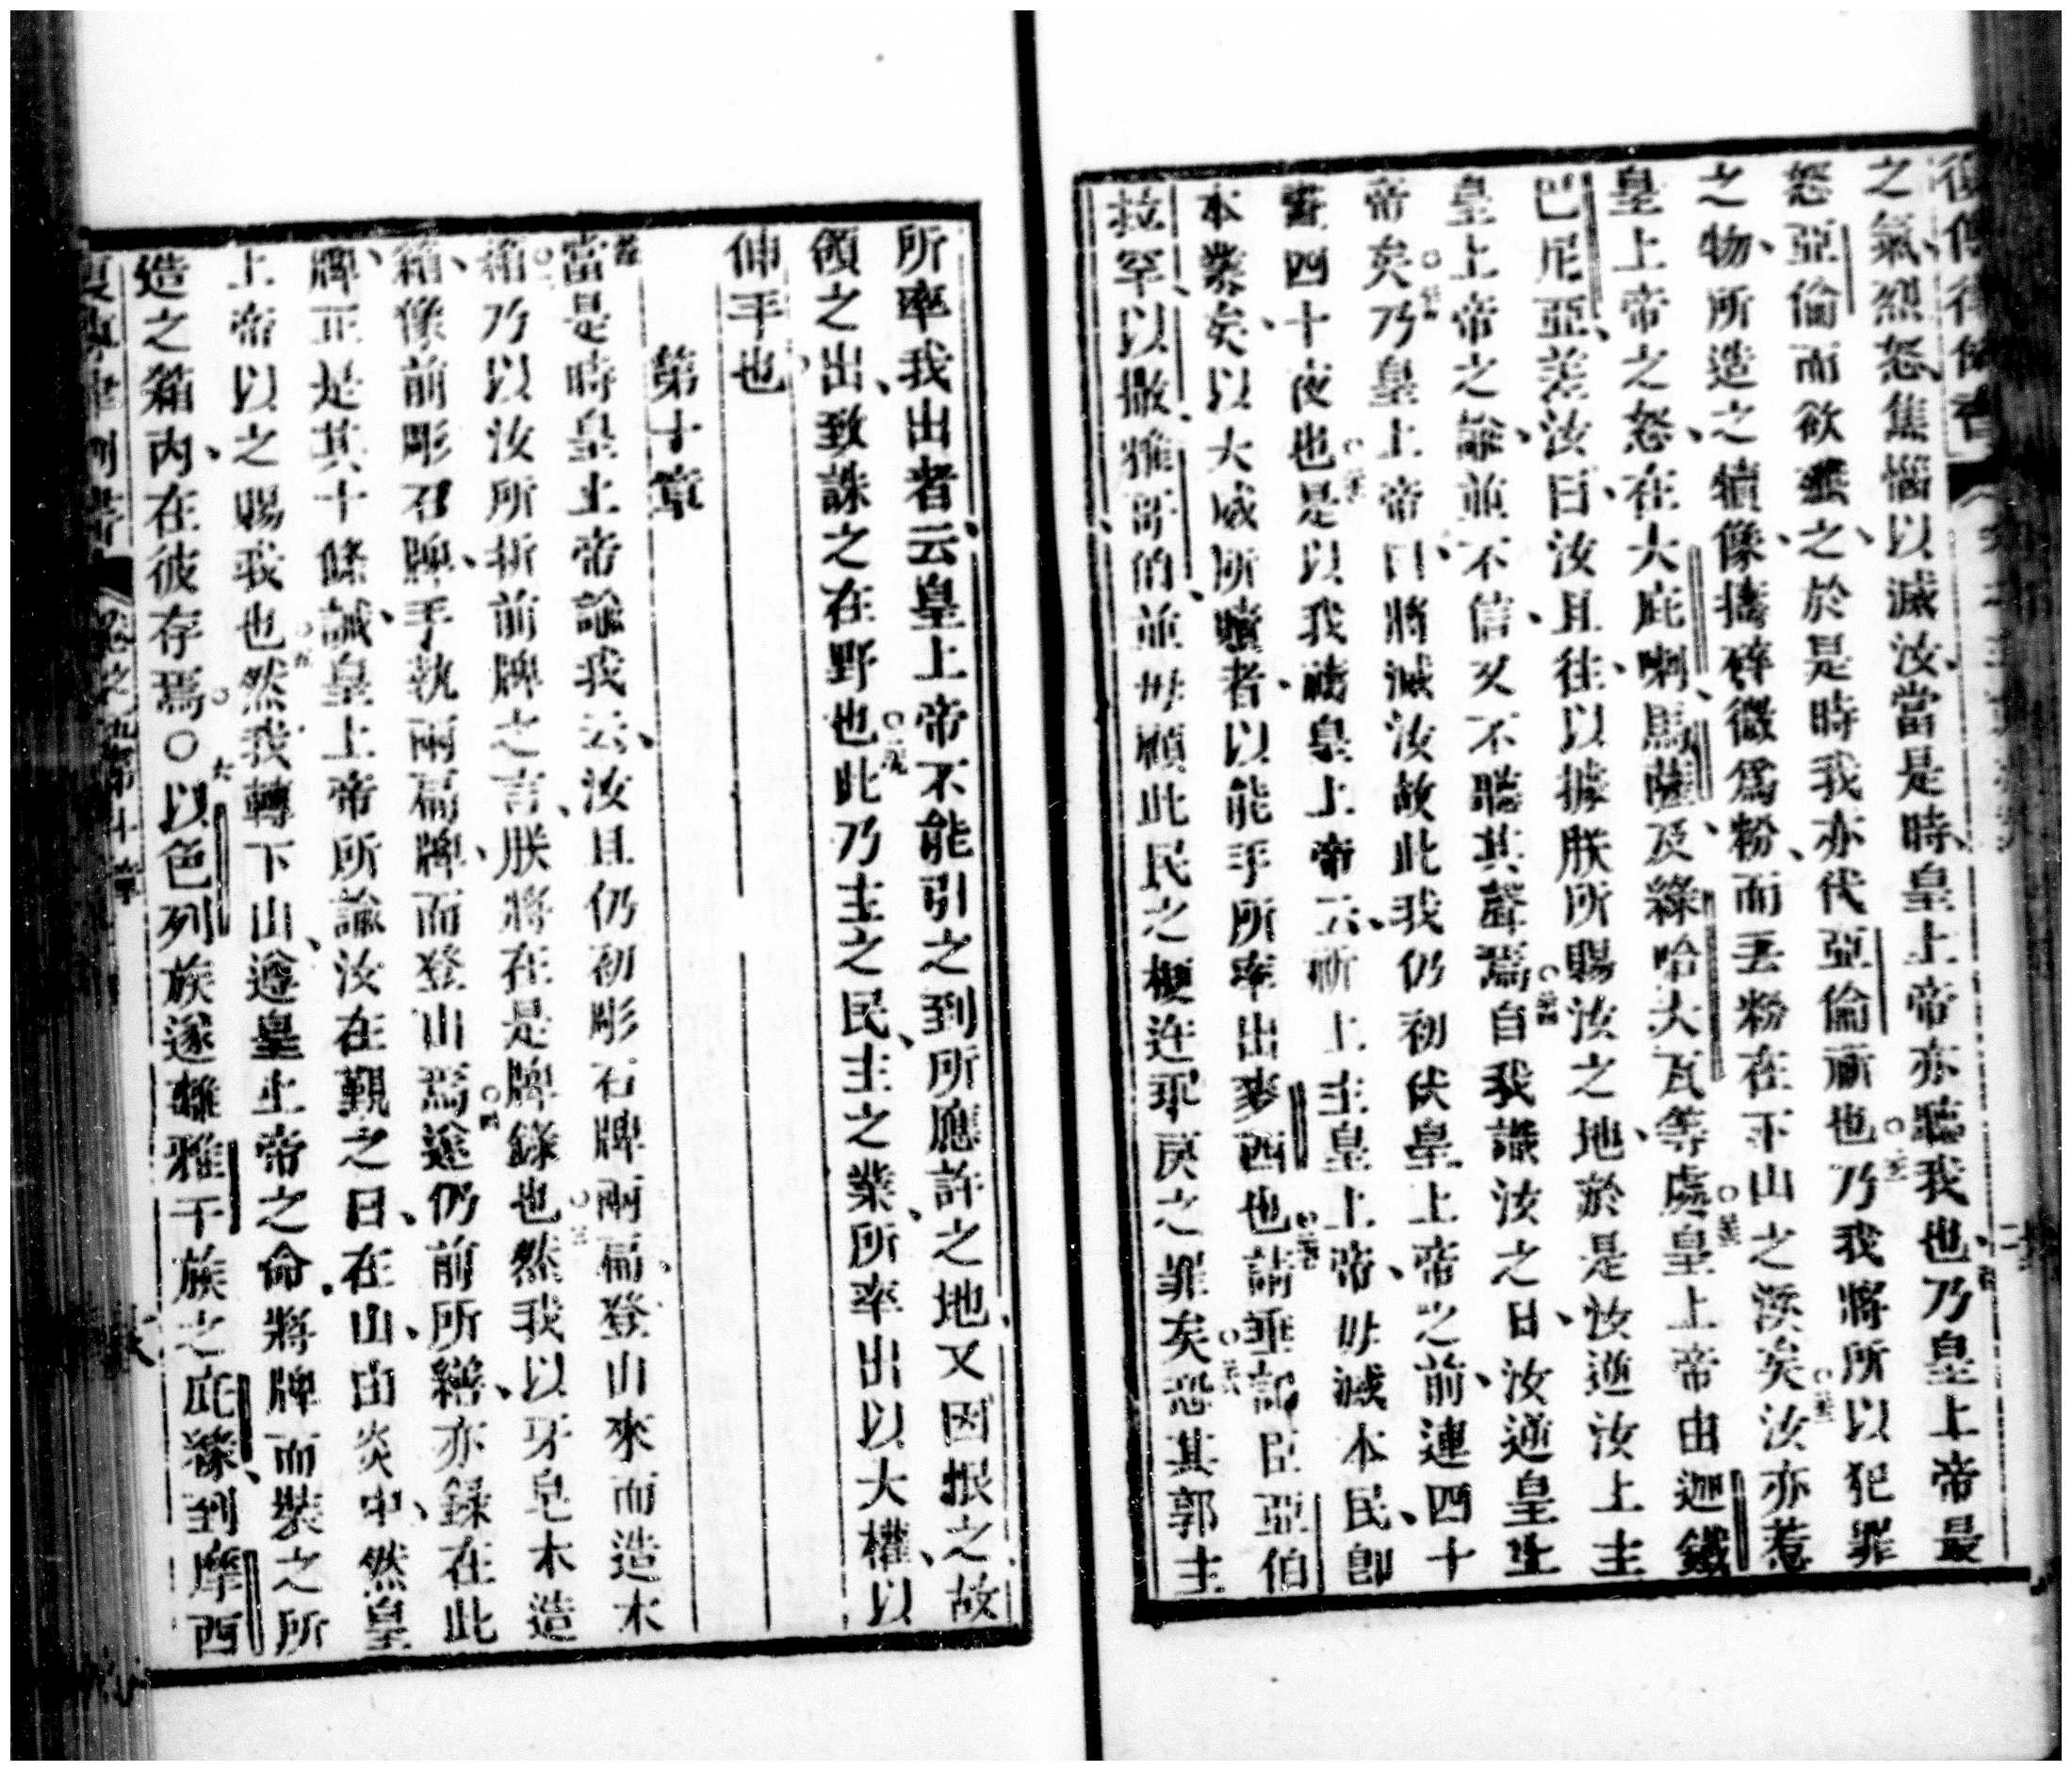 復傳律例書
之氣烈怒焦惱以滅汝當是時皇上帝亦聽我也乃皇上帝最
怒亞倫而欲滅之於是時我亦代亞倫祈也乃我將所以犯罪
之物所造之犢像擣碎微為粉而丟粉在下山之溪矣汝亦惹
皇上帝之怒在大庇喇馬薩及綠哈大瓦等處皇上帝由迦鐵
巴尼亞差汝曰汝且往以據朕所賜汝之地於是汝逆汝上主
皇上帝之諭並不信又不聽其聲焉自我識汝之日汝逆皇上
帝矣乃皇上帝曰將滅汝故此我仍初伏皇上帝之前連四十
晝四十夜也是以我禱皇上帝云祈上主皇上帝毋滅本民即
本業矣以大威所贖者以能手所率出麥西也請垂記臣亞伯
拉罕以撒雅哥的並毋顧此民之梗迕邪戾之罪矣恐其郭主
所率我出者云皇上帝不能引之到所應許之地又因恨之故
領之出致誅之在野也此乃主之民主之業所率出以大權以
伸手也
第十章
當是時皇上帝諭我云汝且仍初彫石牌兩扁登山來而造木
箱乃以汝所折前牌之言朕將在是牌錄也然我以牙皂木造
箱像前彫石牌手執兩扁牌而登山焉遂仍前所繕亦錄在此
牌正是其十條誡皇上帝所諭汝在覲之日在山由炎中然皇
上帝以之賜我也然我轉下山遵皇上帝之命將牌而裝之所
造之箱內在彼存焉○以色列族遂離雅干族之庇綠到摩西
復傳律例書 卷之五 第十章